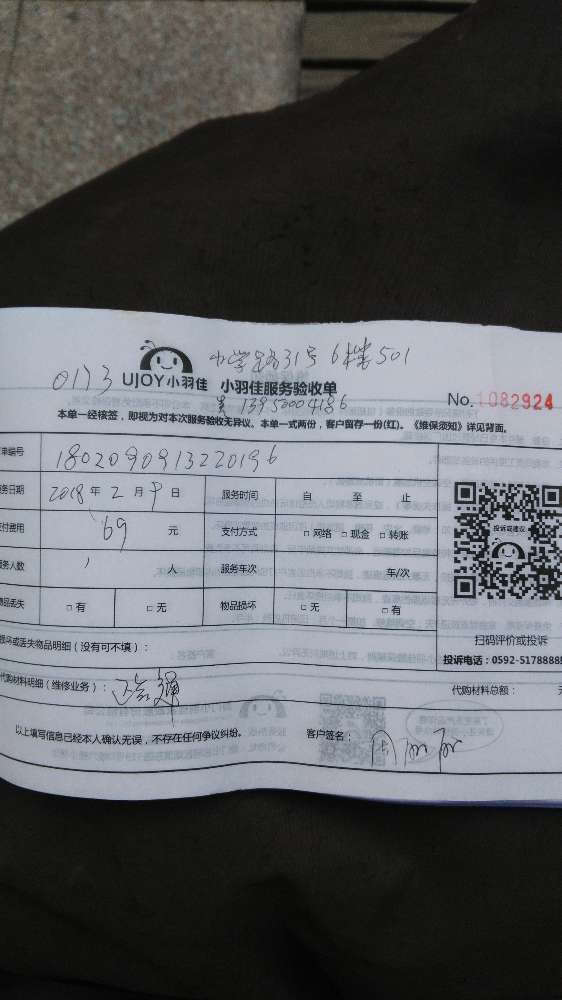 小学路31号 6楼501
0173 UJOY小羽佳 小羽佳服务验收单
13950004186 No.1082924
本单一经核签，即视为对本次服务验收无异议。本单一式两份，客户留存一份(红)。《维保须知》详见背面。
单编号 1802090913220196
务日期 2018年2月9日 服务时间 自 至 止
付费用 69 元 支付方式 □网络 □现金 □转账
务人数 1 人 服务车次 车/次
物品丢失 □有 □无 物品损坏 □无 □有
投诉或建议
扫码评价或投诉
损坏或丢失物品明细（没有可不填）：
投诉电话：0592-5178888
代购材料明细（维修业务）： 代购材料总额： 元
以上填写信息已经本人确认无误，不存在任何争议纠纷。 客户签名：